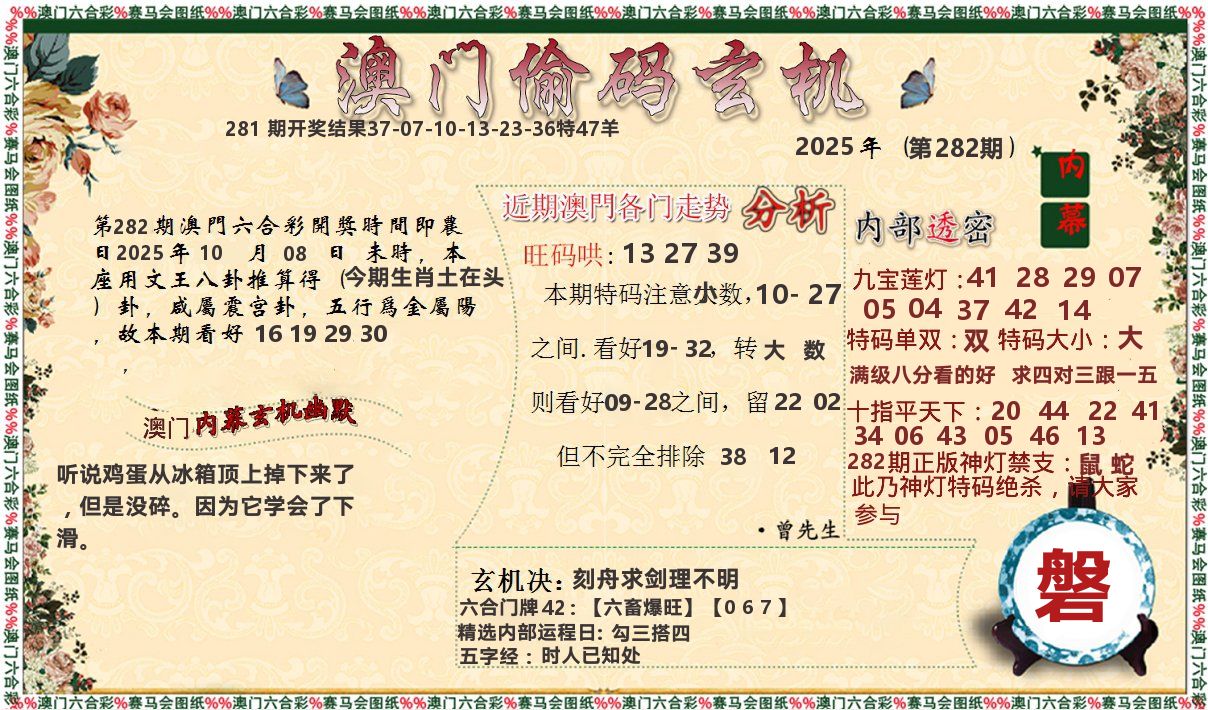 %%澳门六合彩%赛马会图纸%%澳门六合彩%赛马会图纸%%澳门六合彩%赛马会图纸%%澳门六合彩%赛马会图纸%%澳门六合彩%赛马会图纸%%澳门六合彩%赛马会图纸%%
澳门偷码玄机
281 期开奖结果37-07-10-13-23-36特47羊
2025 年 （第282期）
内幕
第282 期澳門六合彩開獎時間即農
日2025 年 10 月 08 日 来時，本
座用文王八卦推算得（今期生肖土在头
）卦，咸屬震宫卦，五行爲金屬陽
，故本期看好 16 19 29 30
，
澳门内幕玄机幽默
听说鸡蛋从冰箱顶上掉下来了
，但是没碎。因为它学会了下
滑。
近期澳門各门走势 分析
旺码哄：13 27 39
本期特码注意小数，10- 27
之间. 看好19- 32，转 大 数
则看好09-28之间，留 22 02
但不完全排除 38 12
·曾先生
内部透密
九宝莲灯：41 28 29 07
05 04 37 42 14
特码单双：双 特码大小：大
满级八分看的好 求四对三跟一五
十指平天下：20 44 22 41
34 06 43 05 46 13
282期正版神灯禁支：鼠 蛇
此乃神灯特码绝杀，请大家
参与
玄机决：刻舟求剑理不明
六合门牌42：【六畜爆旺】【0 6 7 】
精选内部运程日：勾三搭四
五字经：时人已知处
磐
%%澳门六合彩%赛马会图纸%%澳门六合彩%赛马会图纸%%澳门六合彩%赛马会图纸%%澳门六合彩%赛马会图纸%%澳门六合彩%赛马会图纸%%澳门六合彩%赛马会图纸%%